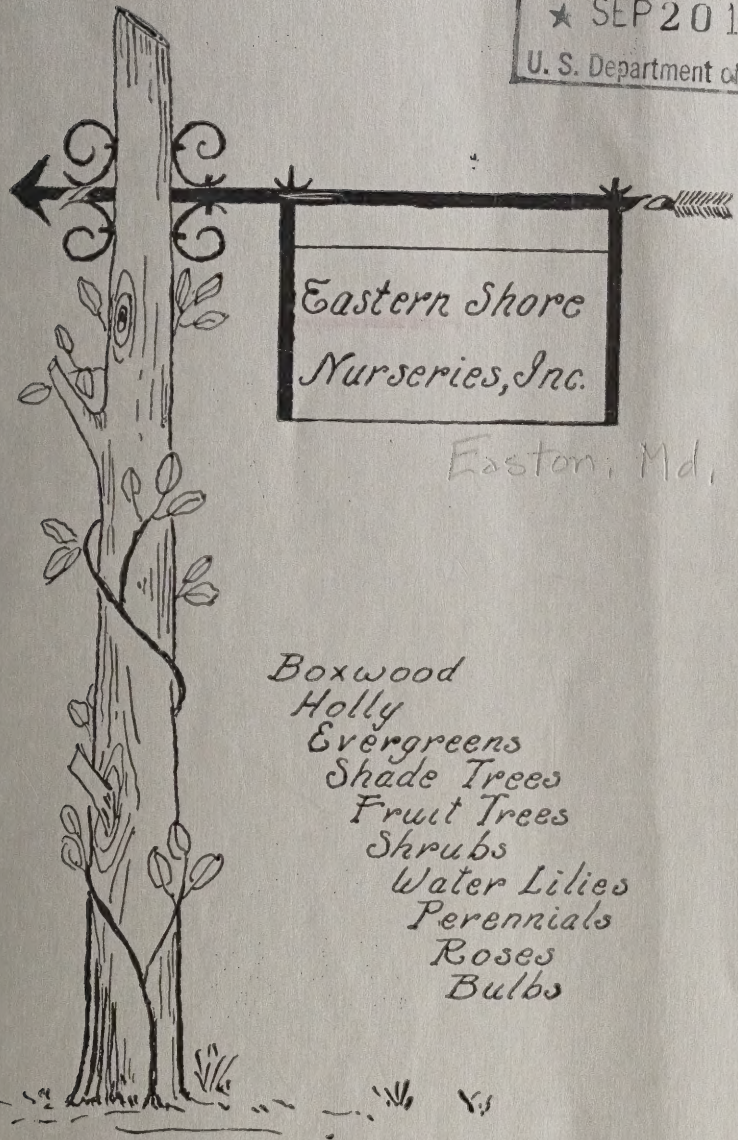 ★ SEP 20 1
U. S. Department of
Eastern Shore
Nurseries, Inc.
Easton, Md.
Boxwood
Holly
Evergreens
Shade Trees
Fruit Trees
Shrubs
Water Lilies
Perennials
Roses
Bulbs